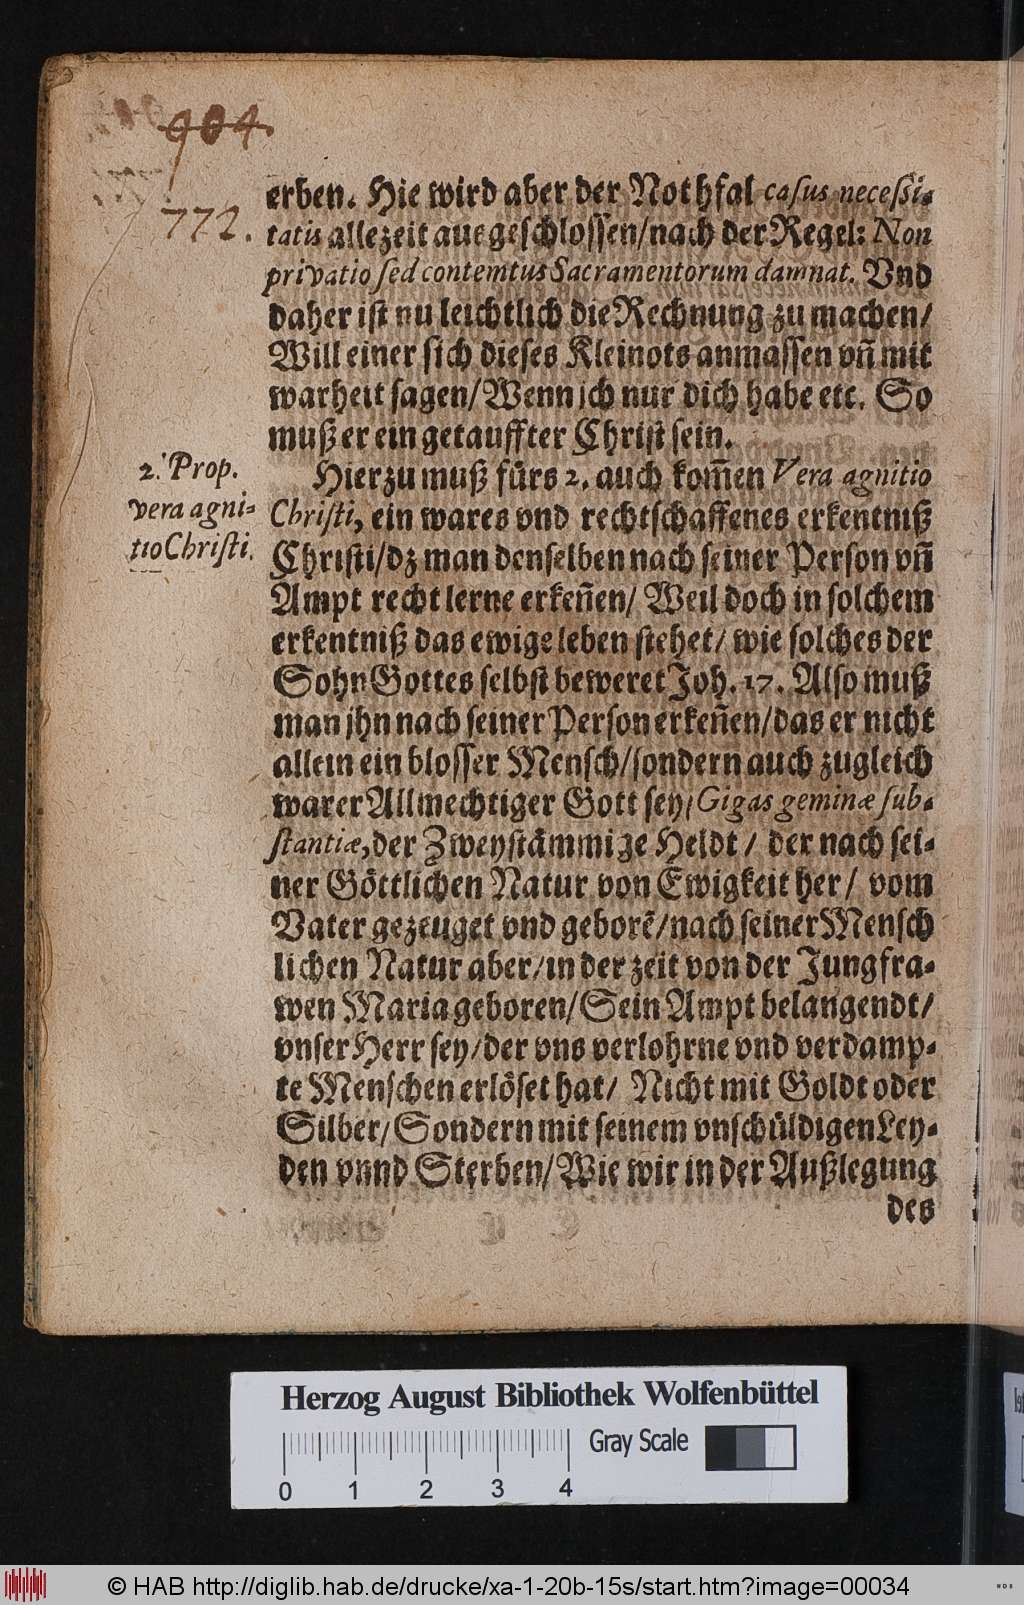 904.
772.
erben. Hie wird aber der Nothfal casus necessi-
tatis allezeit ausgeschlossen/nach der Regel: Non
privatio sed contemtus Sacramentorum damnat. Vnd
daher ist nu leichtlich die Rechnung zu machen/
Will einer sich dieses Kleinots anmassen vñ mit
warheit sagen/Wenn ich nur dich habe etc. So
muß er ein getauffter Christ sein.
2. Prop.
vera agni-
tio Christi.
Hierzu muß fürs 2. auch kom̃en Vera agnitio
Christi, ein wares vnd rechtschaffenes erkentniß
Christi/dz man denselben nach seiner Person vñ
Ampt recht lerne erkeñen/ Weil doch in solchem
erkentniß das ewige leben stehet/ wie solches der
Sohn Gottes selbst beweret Joh. 17. Also muß
man jhn nach seiner Person erkeñen/das er nicht
allein ein blosser Mensch/sondern auch zugleich
warer Allmechtiger Gott sey/Gigas geminæ sub-
stantiæ,der Zweystämmige Heldt / der nach sei-
ner Göttlichen Natur von Ewigkeit her/ vom
Vater gezeuget vnd geborẽ/nach seiner Mensch
lichen Natur aber/in der zeit von der Jungfra-
wen Maria geboren/Sein Ampt belangendt/
vnser Herr sey/der vns verlohrne vnd verdamp-
te Menschen erlöset hat/ Nicht mit Goldt oder
Silber/Sondern mit seinem vnschüldigen Ley-
den vnnd Sterben/Wie wir in der Außlegung
des
Herzog August Bibliothek Wolfenbüttel
Gray Scale
0 1 2 3 4
© HAB http://diglib.hab.de/drucke/xa-1-20b-15s/start.htm?image=00034